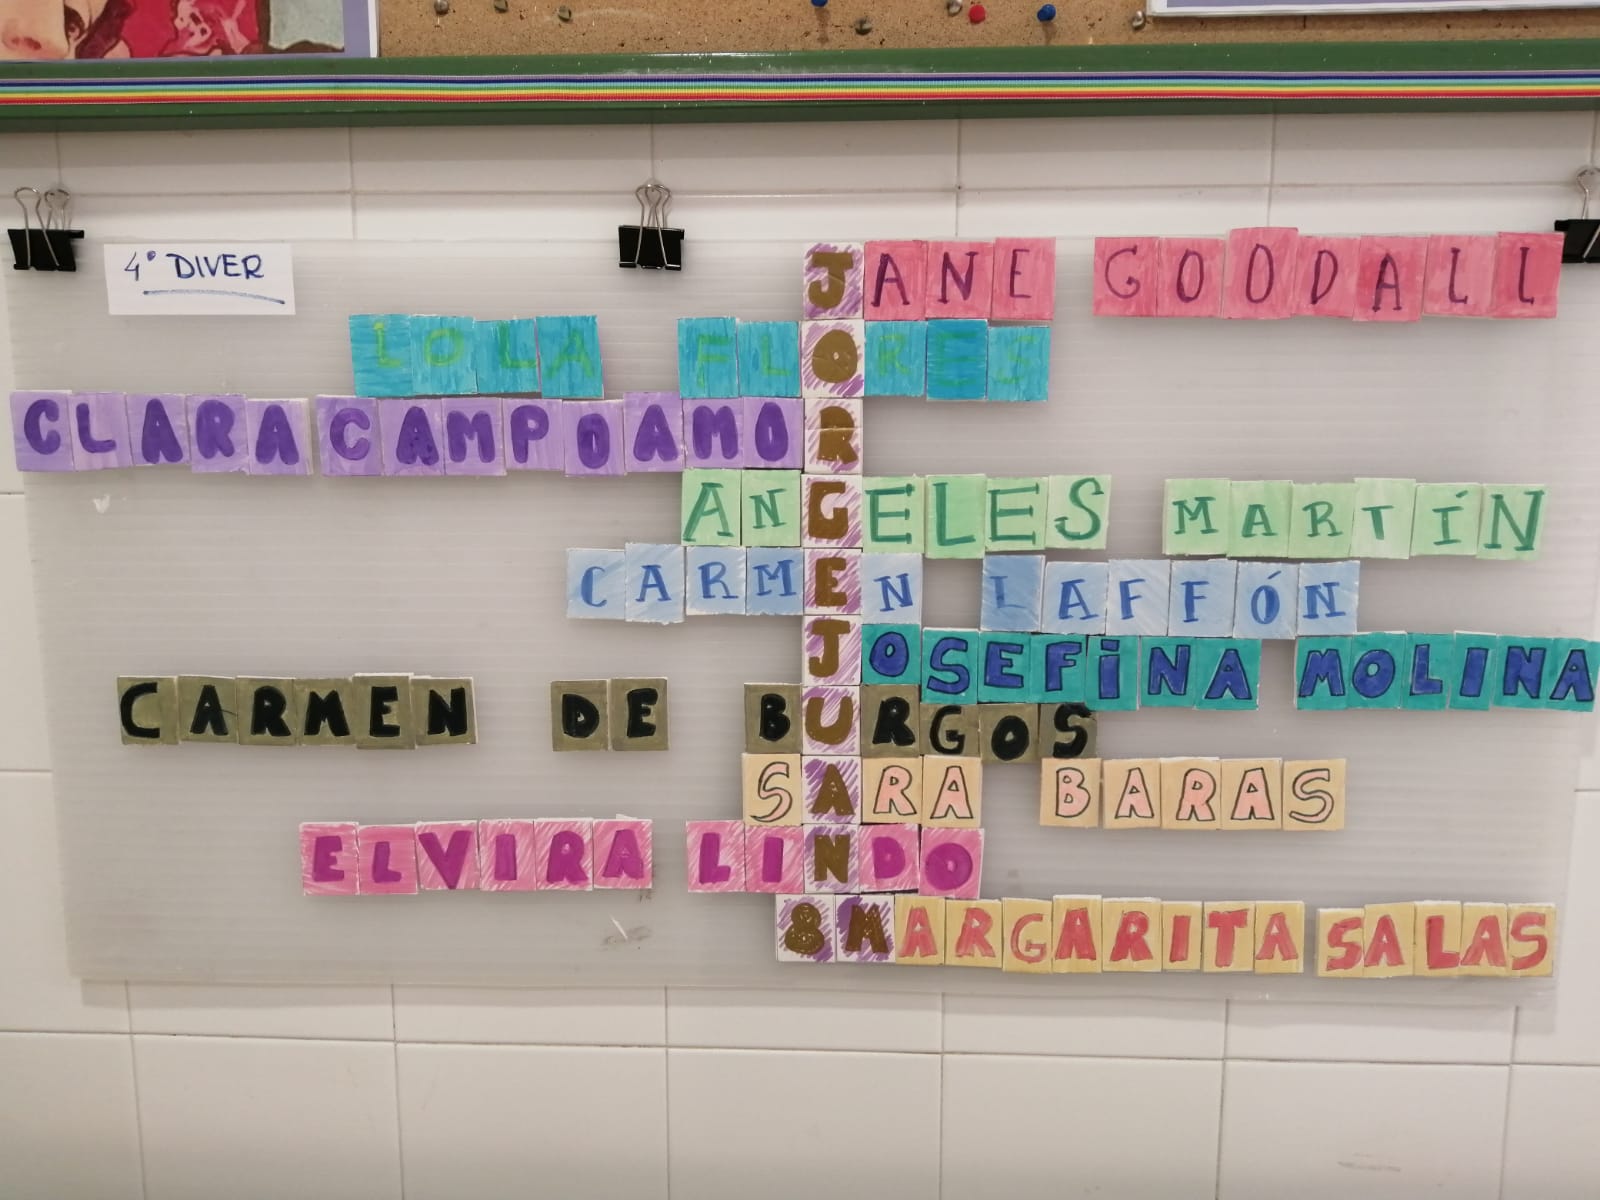 4º DIVER
JANE GOODALL
LOLA FLORES
CLARA CAMPOAMOR
ANGELES MARTÍN
CARMEN LAFFÓN
JOSEFINA MOLINA
CARMEN DE BURGOS
SARA BARAS
ELVIRA LINDO
8MARGARITA SALAS